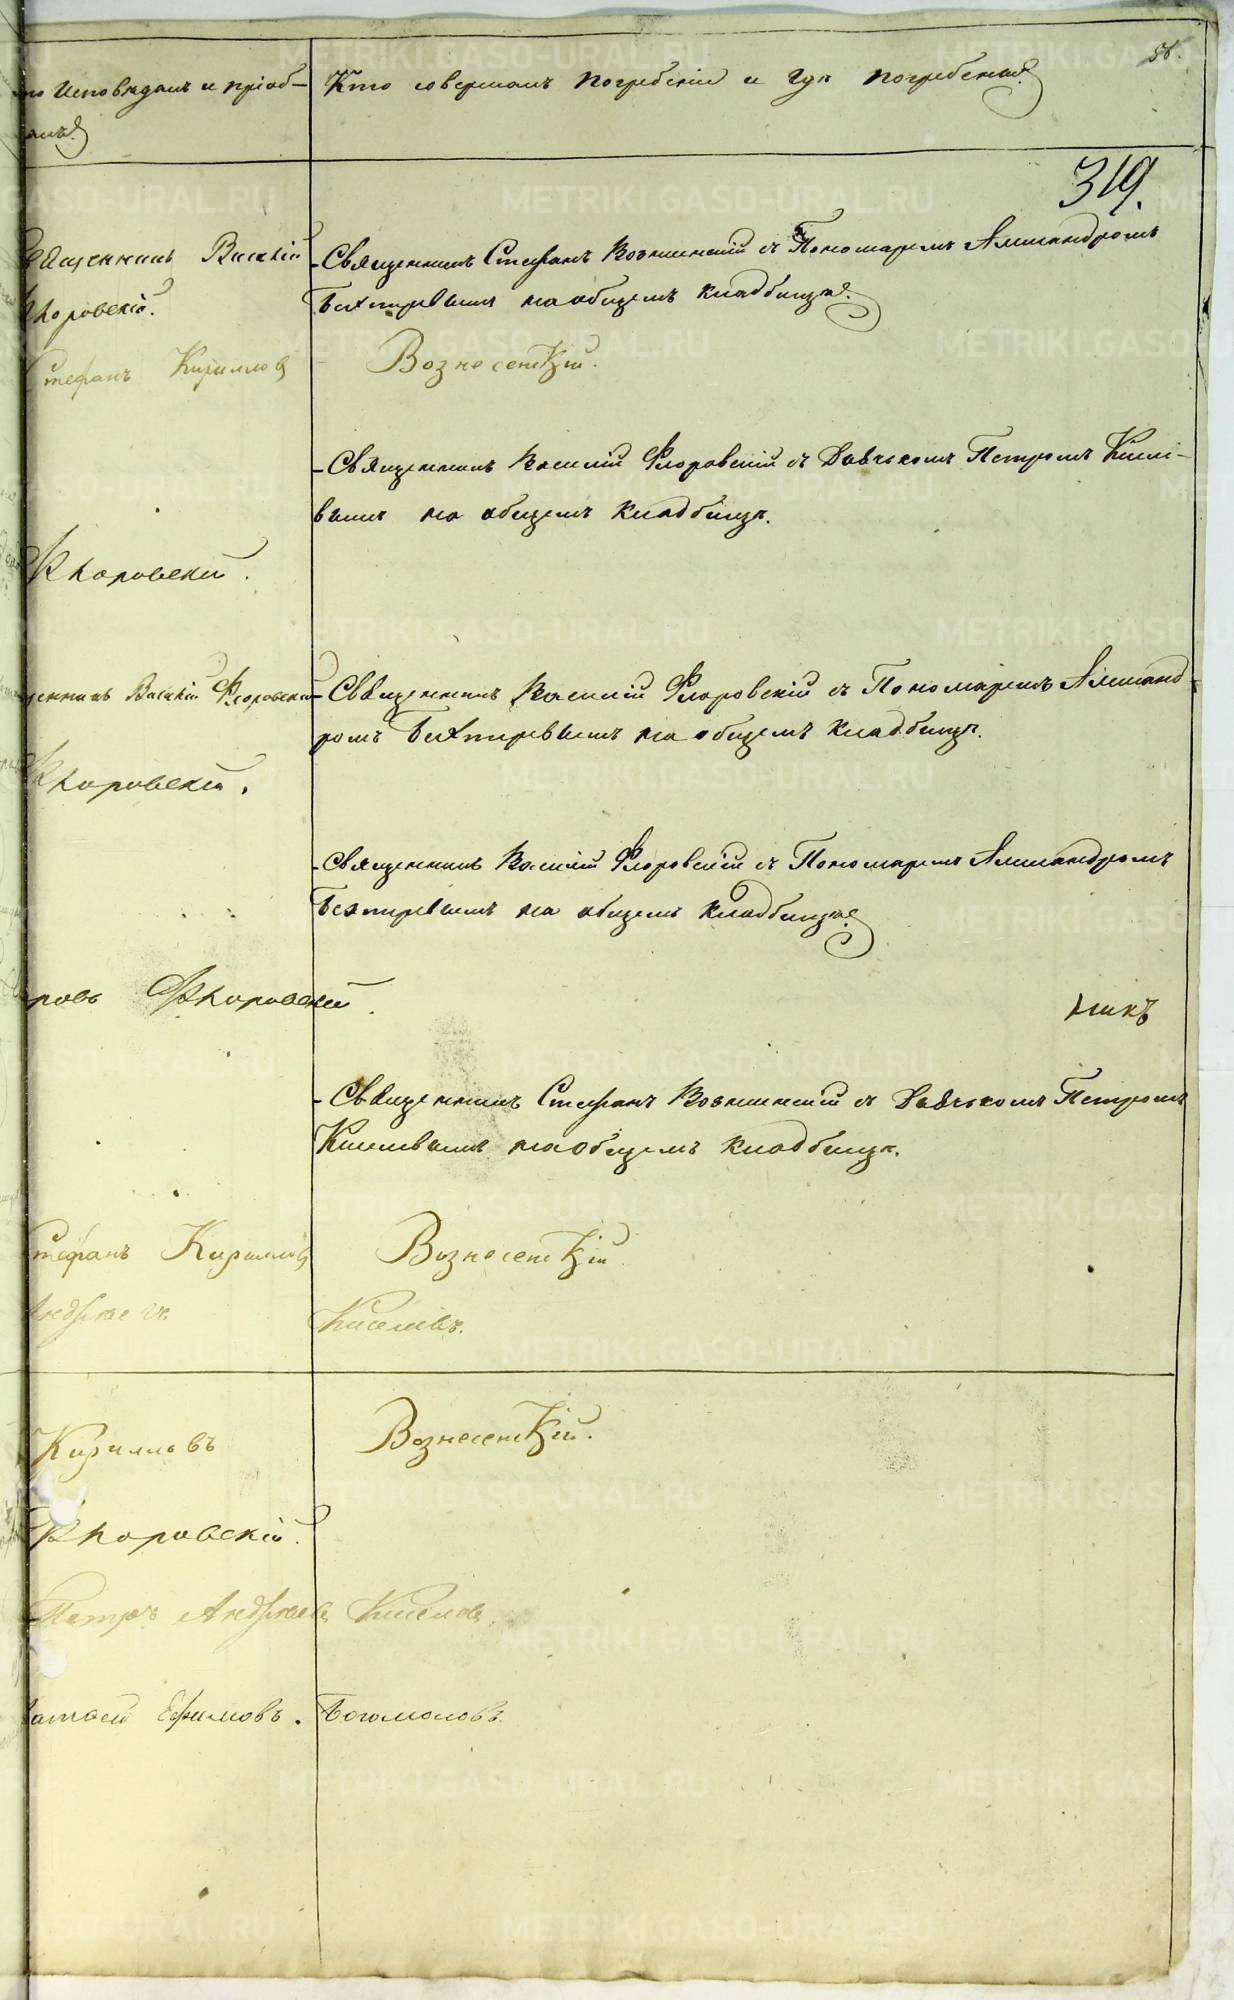 56
Исповѣдалъ и пріоб- Кто совершалъ погребеніе и гдѣ погребены.
319.
Священникъ Василій - Священникъ Стефанъ Вознесенскій съ Пономаремъ Александромъ
Флоровскій. Бехтеревымъ на общемъ кладбищѣ.
Стефанъ Кирилловъ Вознесенскій.
- Священникъ Василій Флоровскій съ Дьячкомъ Петромъ Кисе-
левымъ на общемъ кладбищѣ.
Флоровскій.
Василій Флоровскій - Священникъ Василій Флоровскій съ Пономаремъ Александ-
ромъ Бехтеревымъ на общемъ кладбищѣ.
Флоровскій.
- Священникъ Василій Флоровскій съ Пономаремъ Александромъ
Бехтеревымъ на общемъ кладбищѣ.
ровъ Флоровскій.
никъ
- Священникъ Стефанъ Вознесенскій съ Дьячкомъ Петромъ
Киселевымъ на общемъ кладбищѣ.
Стефанъ Кирилловъ Вознесенскій
Андреевъ Киселевъ.
Кирилловъ Вознесенскій.
Флоровскій.
Петръ Андреевъ Киселевъ.
Ефимовъ. Богомоловъ.
METRIKI.GASO-URAL.RU